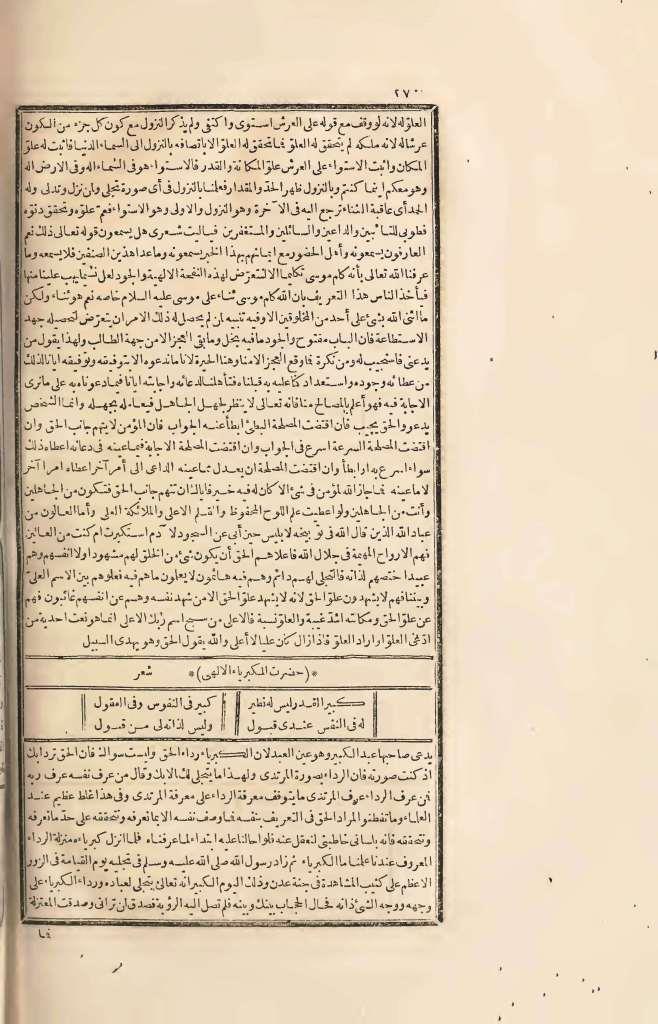 ٢٧٠
العلوّ له لانه لو وقف مع قوله على العرش استوى واكتفى ولم يذكر النزول مع كون كل جزء من الكون
عرشاله لانه ملكه لم يتحقق له العلوّ فما تحقق له العلو الا باتصافه بالنزول الى السماء الدنيا فأثبت له علوّ
المكان وأثبت الاستواء على العرش علوّ المكانة والقدر فالاستواء هو فى السماء اله وفى الارض اله
وهو معكم أينما كنتم وبالنزول ظهر الحدّ والمقدار فعلمنا بالنزول فى أى صورة تجلى ولمن نزل وتدلى وله
الحد أى عاقبة الثناء ترجع اليه فى الآخرة وهو النزول والاولى وهو الاستواء فعم علوّه وتحقق دنوّه
فطوبى للتائبين والداعين والسائلين والمستغفرين فياليت شعرى هل يسمعون قوله تعالى ذلك نعم
العارفون يسمعونه وأهل الحضور مع ايمانهم بهذا الخبر يسمعونه وما عدا هذين الصنفين فلا يسمعه وما
عرفنا الله تعالى بأنه كلم موسى تكليما الا لنتعرّض لهذه النفحة الالهية والجود لعل نسيما يهب علينا منها
فيأخذ الناس هذا التعريف بان الله كلم موسى ثناء على موسى عليه السلام خاصه نعم هو ثناء ولكن
ما أثنى الله بشئ على أحد من المخلوقين الا وفيه تنبيه لمن لم يحصل له ذلك الامر ان يتعرّض لتحصيله جهد
الاستطاعة فان الباب مفتوح والجود ما فيه بخل وما بقى العجز الا من جهة الطالب ولهذا يقول من
يدعنى فاستجيب له ومن نكرة فما وقع العجز الا منا وهنا الحيرة لانا ما ندعوه الا بتوفيقه وتوفيقه ايانا لذلك
من عطائه وجوده واستعداد كنا عليه به قبلناه فتأهلنا لدعائه واجابته ايانا فيما دعوناه به على ما يرى
الاجابة فيه فهو أعلم بالمصالح منا فانه تعالى لا ينظر لجهل الجاهل فيعامله بجهله وانما الشخص
يدعو والحق يجيب فان اقتضت المصلحة البطئ ابطأ عنه الجواب فان المؤمن لا يتهم جانب الحق وان
اقتضت المصلحة السرعة اسرع فى الجواب وان اقتضت المصلحة الاجابة فيما عينه فى دعائه اعطاه ذلك
سواء اسرع به او ابطأ وان اقتضت المصلحة ان يعدل مما عينه الداعى الى أمر آخر اعطاه امرا آخر
لا ما عينه فما جاز الله لمؤمن فى شئ الا كان له فيه خير فاياك ان تتهم جانب الحق فتكون من الجاهلين
وأنت من الجاهلين ولو اعطيت علم اللوح المحفوظ والقلم الاعلى والملائكة العلى وأما العالون من
عباد الله الذين قال الله فى توبيخه لابليس حين أبى عن السجود لا دم أستكبرت ام كنت من العالين
فهم الارواح المهيمة فى جلال الله فاعلاهم الحق أن يكون شئ من الخلق لهم مشهودا ولا انفسهم وهم
عبيد اختصهم لذاته فالتجلى لهم دائم وهم فيه هائمون لا يعلمون ما هم فيه فعلوّهم بين الاسم العلىّ
وبيننا فهم لا يشهدون علوّ الحق لانه لا يشهد علوّ الحق الا من شهد نفسه وهم عن انفسهم غائبون فهم
عن علوّ الحق ومكانته اشدّ غيبة والعلوّ نسبة فالاعلى من سبح اسم ربك الاعلى انما هو نعت احدية من
ادّعى العلوّ او اراد العلوّ فاذا زال كان عليا لا أعلى والله يقول الحق وهو يهدى السبيل
*(حضرت الكبرياء الالهى)* شعر
كبير القدر ليس له نظير كبير فى النفوس وفى العقول
له فى النفس عندى قبول وليس لذاته لى من قبول
يدعى صاحبها عبد الكبير وهو عين العبد لان الكبرياء رداء الحق وليست سواك فان الحق تردا بك
اذ كنت صورته فان الرداء بصورة المرتدى ولهذا ما يتجلى لك الا بك وقال من عرف نفسه عرف ربه
فمن عرف الرداء عرف المرتدى ما يتوقف معرفة الرداء على معرفة المرتدى وفى هذا غلط عظيم عند
العلماء وما تفطنوا لمراد الحق فى التعريف بنفسه فما وصف نفسه الا بما نعرفه ونتحققه على حدّ ما نعرفه
ونتحققه فانه بلسانى خاطبنى لنعقل عنه فلو احالنا عليه ابتداء لما عرفناه فلما انزل كبرياءه منزلة الرداء
المعروف عندنا علمنا ما الكبرياء ثم زاد رسول الله صلى الله عليه وسلم فى تجليه يوم القيامة فى الزور
الاعظم على كثيب المشاهدة فى جنة عدن وذلك اليوم الكبير انه تعالى يتجلى لعباده ورداء الكبرياء على
وجهه ووجه الشئ ذاته فحال الحجاب بينك وبينه فلم تصل اليه الرؤية فصدق لن ترانى وصدقت المعتزلة
فما